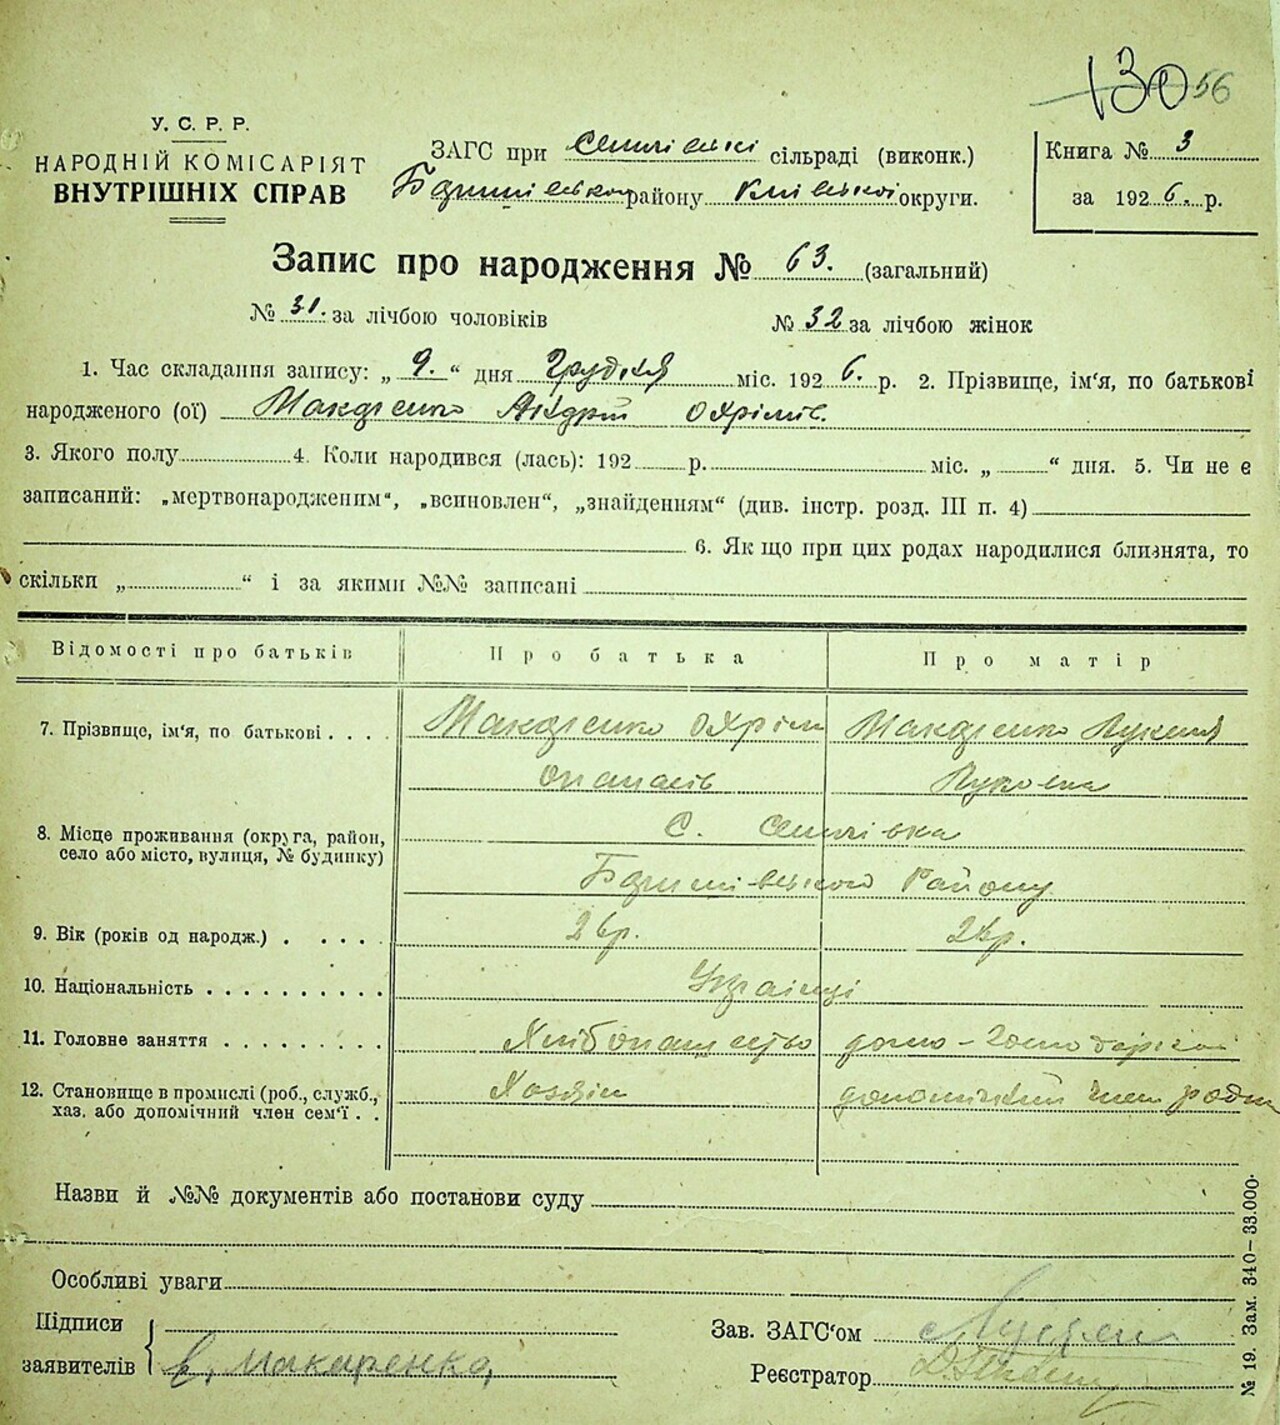 130 56
У. С. Р. Р.
НАРОДНІЙ КОМІСАРІЯТ
ВНУТРІШНІХ СПРАВ
ЗАГС при сільраді (виконк.)
району Київської округи.
Книга № 3
за 1926. р.
Запис про народження № 63. (загальний)
№ 31. за лічбою чоловіків
№ 32 за лічбою жінок
1. Час складання запису: „ 9. “ дня Грудня міс. 1926. р. 2. Прізвище, ім'я, по батькові
народженого (ої) Макаренко Андрій Охрімів.
3. Якого полу 4. Коли народився (лась): 192 р. міс. „ “ дня. 5. Чи не є
записаний: „мертвонародженим“, „всиновлен“, „знайденням“ (див. інстр. розд. III п. 4)
6. Як що при цих родах народилися близнята, то
скільки „ “ і за якими №№ записані
Відомості про батьків
Про батька
Про матір
7. Прізвище, ім'я, по батькові . . . .
Макаренко Охрім Макаренко
Опанасів
8. Місце проживання (округа, район,
село або місто, вулиця, № будинку)
С.
Району
9. Вік (років од народж.) . . . . .
26р.
10. Національність . . . . . . . . . .
Українці
11. Головне заняття . . . . . . . . .
Хліборобство домо-господарка
12. Становище в промислі (роб., служб.,
хаз. або допомічний член сем'ї . .
Хазяїн допомічний член родини
Назви й №№ документів або постанови суду
Особливі уваги
Підписи
заявителів
Макаренко
Зав. ЗАГС'ом
Реєстратор
№ 19. Зам. 340–33.000.